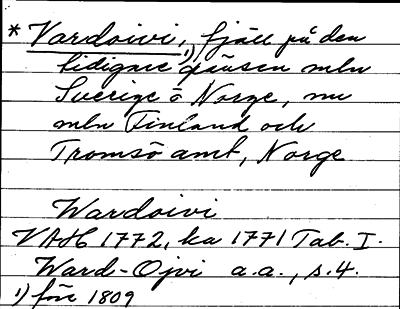 * Vardoivi, fjäll på den
tidigare ¹) gränsen mln
Sverige o Norge, nu
mln Finland och
Tromsö amt, Norge
Wardoivi
VAH 1772, ka 1771 Tab. I.
Ward-Ojvi a.a., s. 4.
¹) före 1809